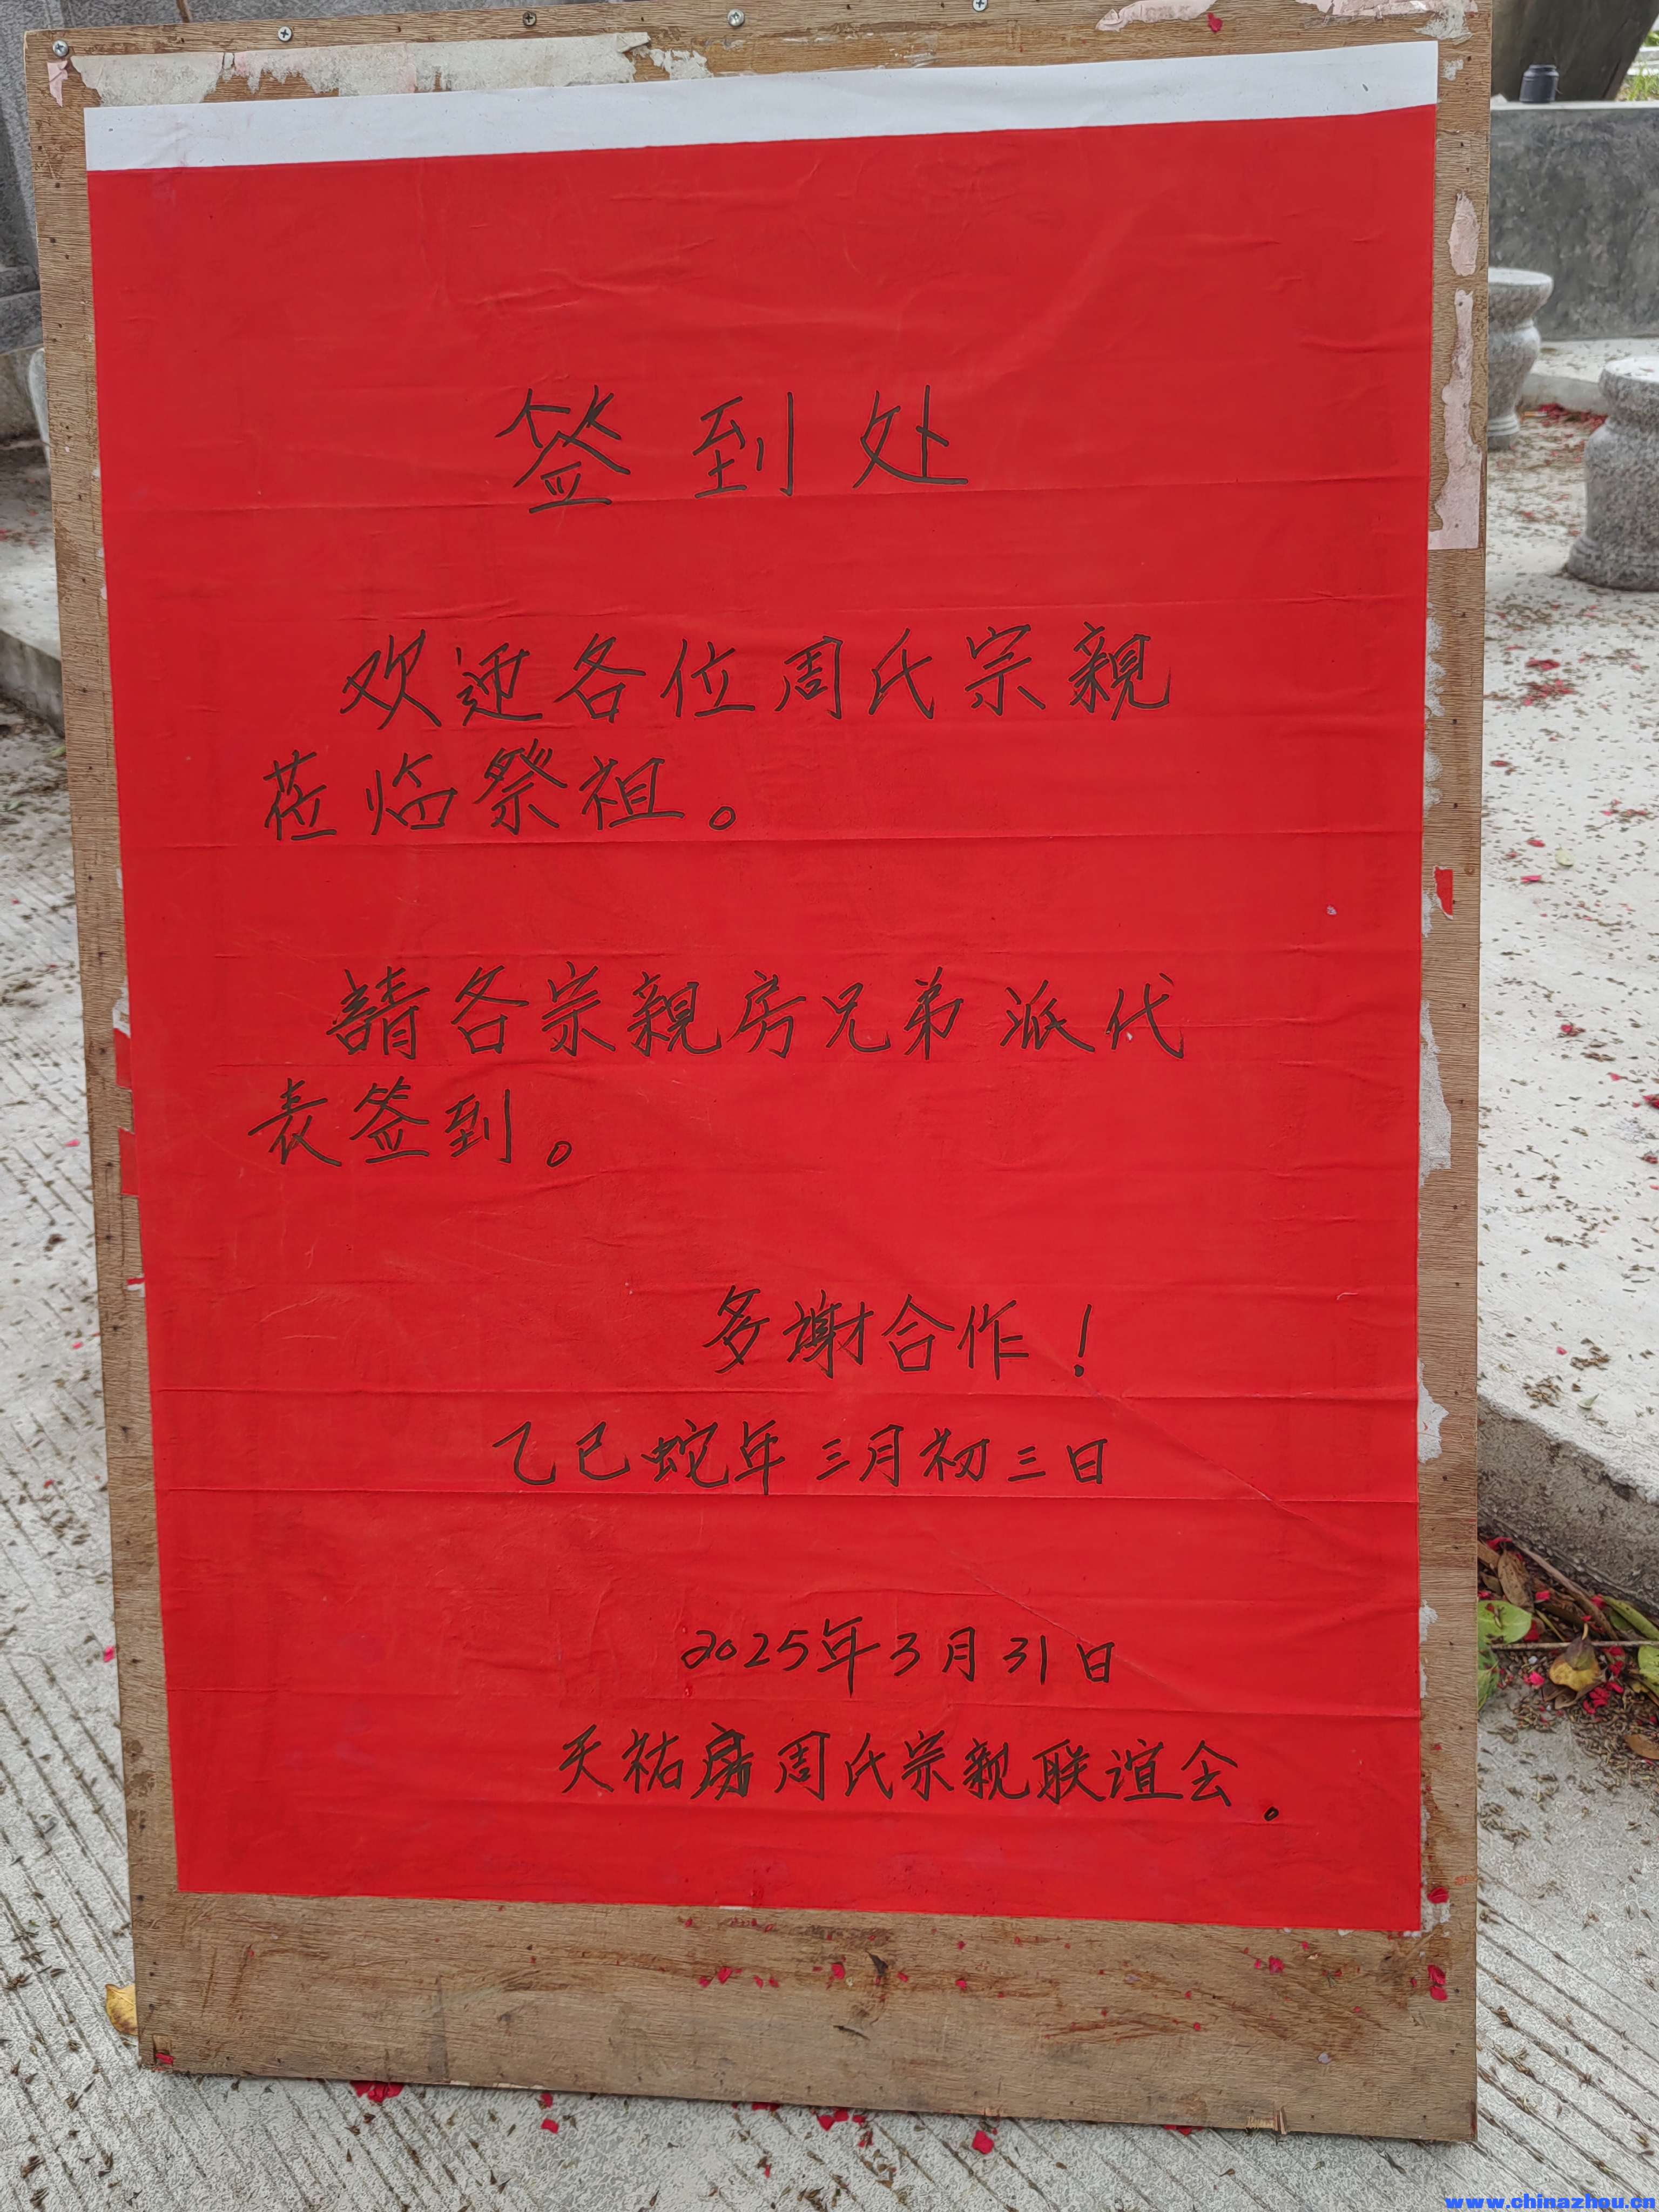 签到处
欢迎各位周氏宗親
莅临祭祖。
請各宗親房兄弟派代
表签到。
多謝合作！
乙巳蛇年三月初三日
2025年3月31日
天祐房周氏宗親联谊会。
www.chinazhou.cn